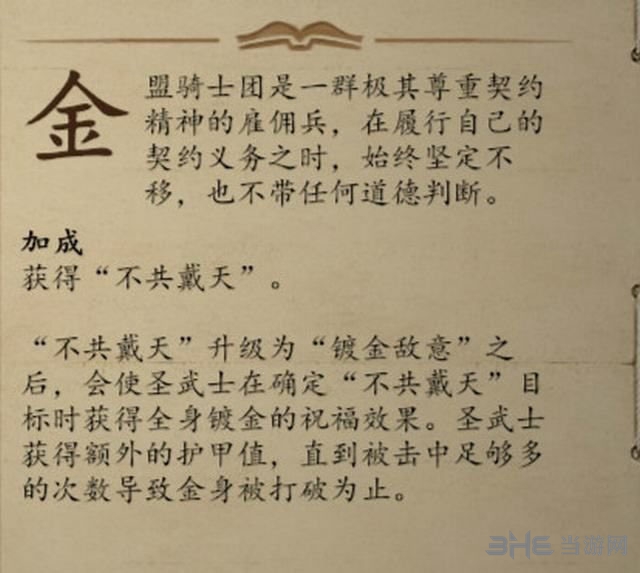 金盟骑士团是一群极其尊重契约
精神的雇佣兵，在履行自己的
契约义务之时，始终坚定不
移，也不带任何道德判断。
加成
获得“不共戴天”。
“不共戴天”升级为“镀金敌意”之
后，会使圣武士在确定“不共戴天”目
标时获得全身镀金的祝福效果。圣武士
获得额外的护甲值，直到被击中足够多
的次数导致金身被打破为止。
3HE 当游网